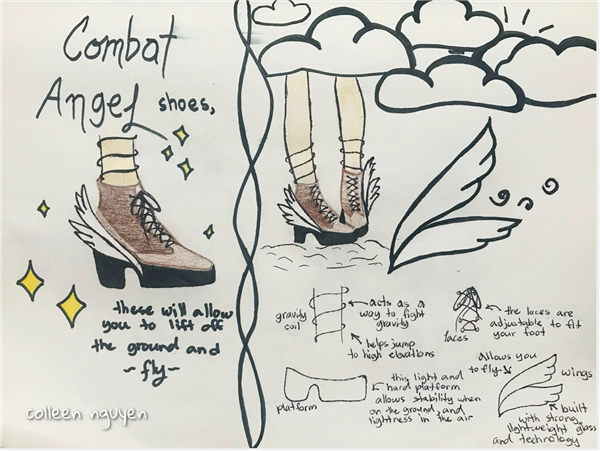 Combat
Angel shoes,
these will allow
you to lift off
the ground and
~fly~
colleen nguyen
gravity
coil
acts as a
way to fight
gravity
helps jump
to high elevations
laces
the laces are
adjustable to fit
your foot
platform
this light and
hard platform
allows stability when
on the ground, and
lightness in the air
Allows you
to fly
wings
built
with strong,
lightweight glass
and technology